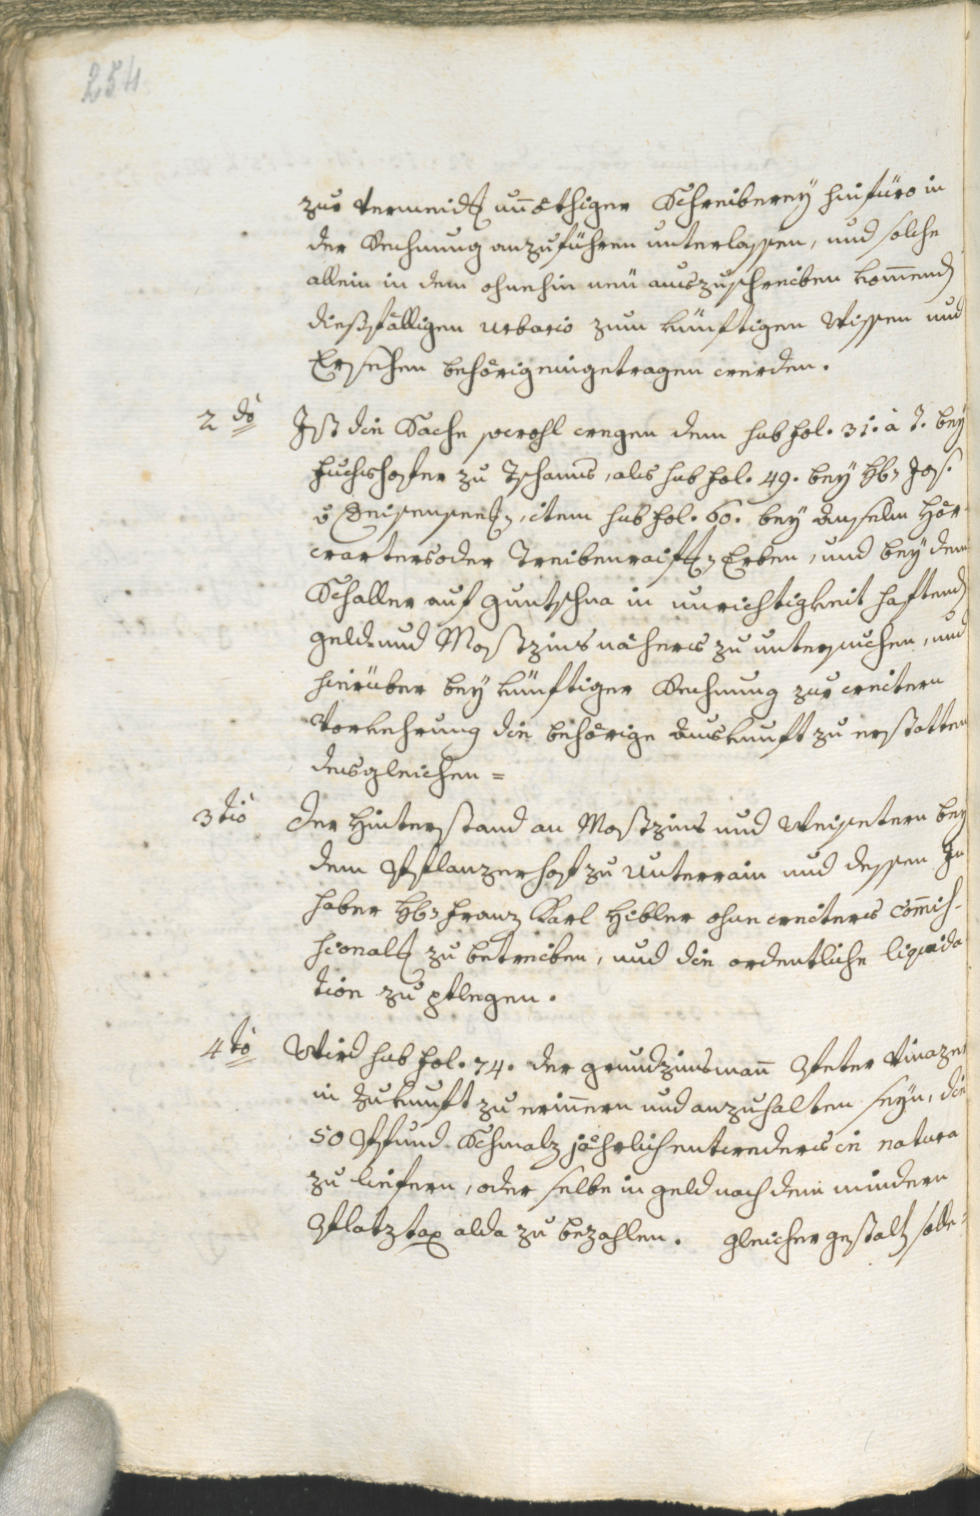 254
zur Vermeidung uñöthiger Schreiberey hinfüro in
der Rechnung anzuführen unterlassen, und solche
allein in dem ohnehin neü auszuschreiben kom̄end
dießfälligen Urbario zum künftigen Wissen und
Ersehen behörig eingetragen werden.
2do Ist die Sache sowohl wegen dem sub fol. 31. à T. bey
Fuchshofer zu Tschams, als sub fol. 49. bey H: Jos.
v , item sub fol. 60. bey Anselm Hör-
wartersoder Erben, und bey dem
Schaller auf Guntschna in unrichtigkeit haftend
geld- und Mostzins näheres zu untersuchen, und
hierüber bey künftiger Rechnung zur weitern
Vorkehrung die behörige Auskunft zu erstatten
desgleichen =
3tio Der Hinterstand an Mostzins und Weisetern bey
dem Pflanzerhof zu Unterrain und dessen In
haber H: Franz Karl Hibler ohne weiteres Com̄is-
sionalt zu betreiben, und die ordentliche liquida
tion zu pflegen.
4to Wird sub fol. 74. der grundzinsman̄ Peter Vinazer
in Zukunft zu erin̄ern und anzuhalten seyn, die
50 Pfund Schmalz jährlich entweders in natura
zu liefern, oder selbe in geld nach dem mindern
Platztax alda zu bezahlen. gleicher gestalt solle=